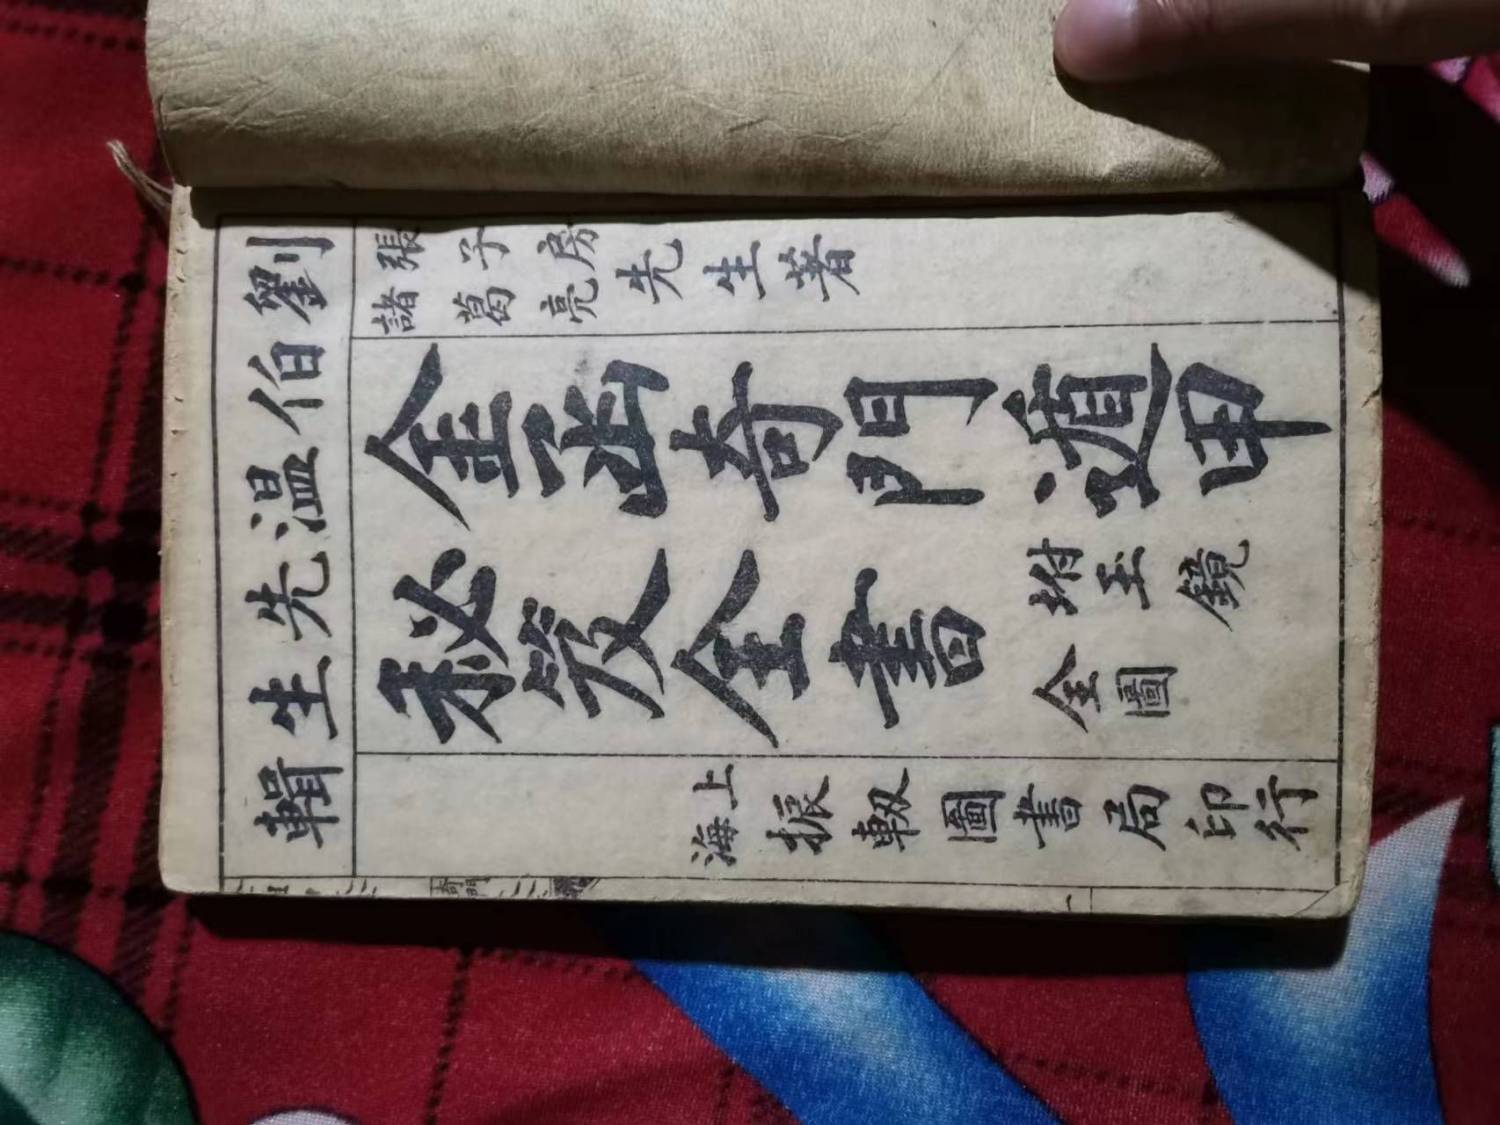 劉伯温先生輯
張子房
諸葛亮
先生著
金函奇門遁甲
秘笈全書
附玉鏡
全圖
上海
振轂圖書局印行
奇門
一